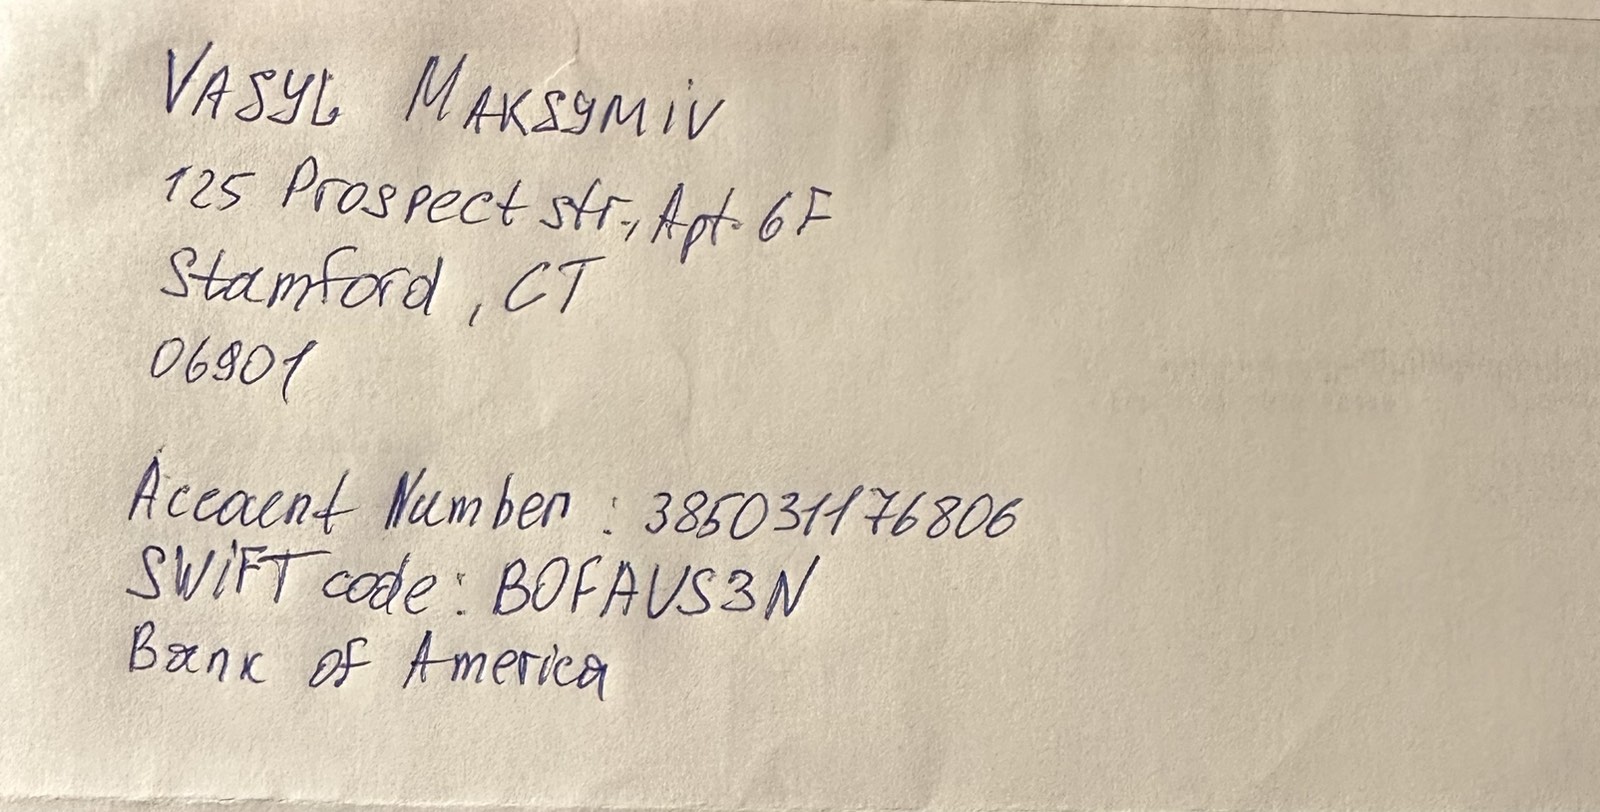 VASYL MAKSYMIV
125 Prospect str., Apt. 6F
Stamford, CT
06901
Account Number: 385031176806
SWIFT code: BOFAUS3N
Bank of America